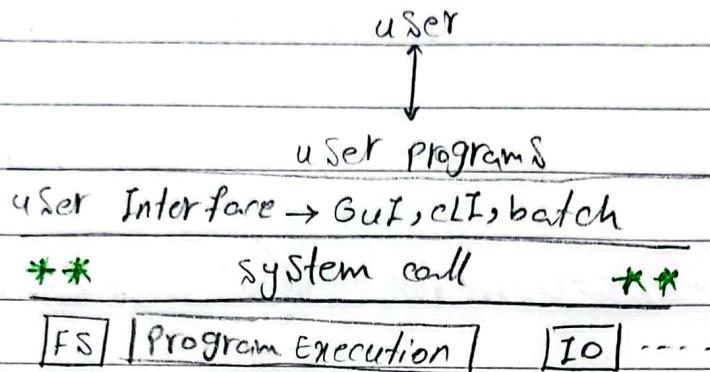 user
user programs
user Interface → GUI, CLI, batch
** system call **
FS Program Execution IO ....